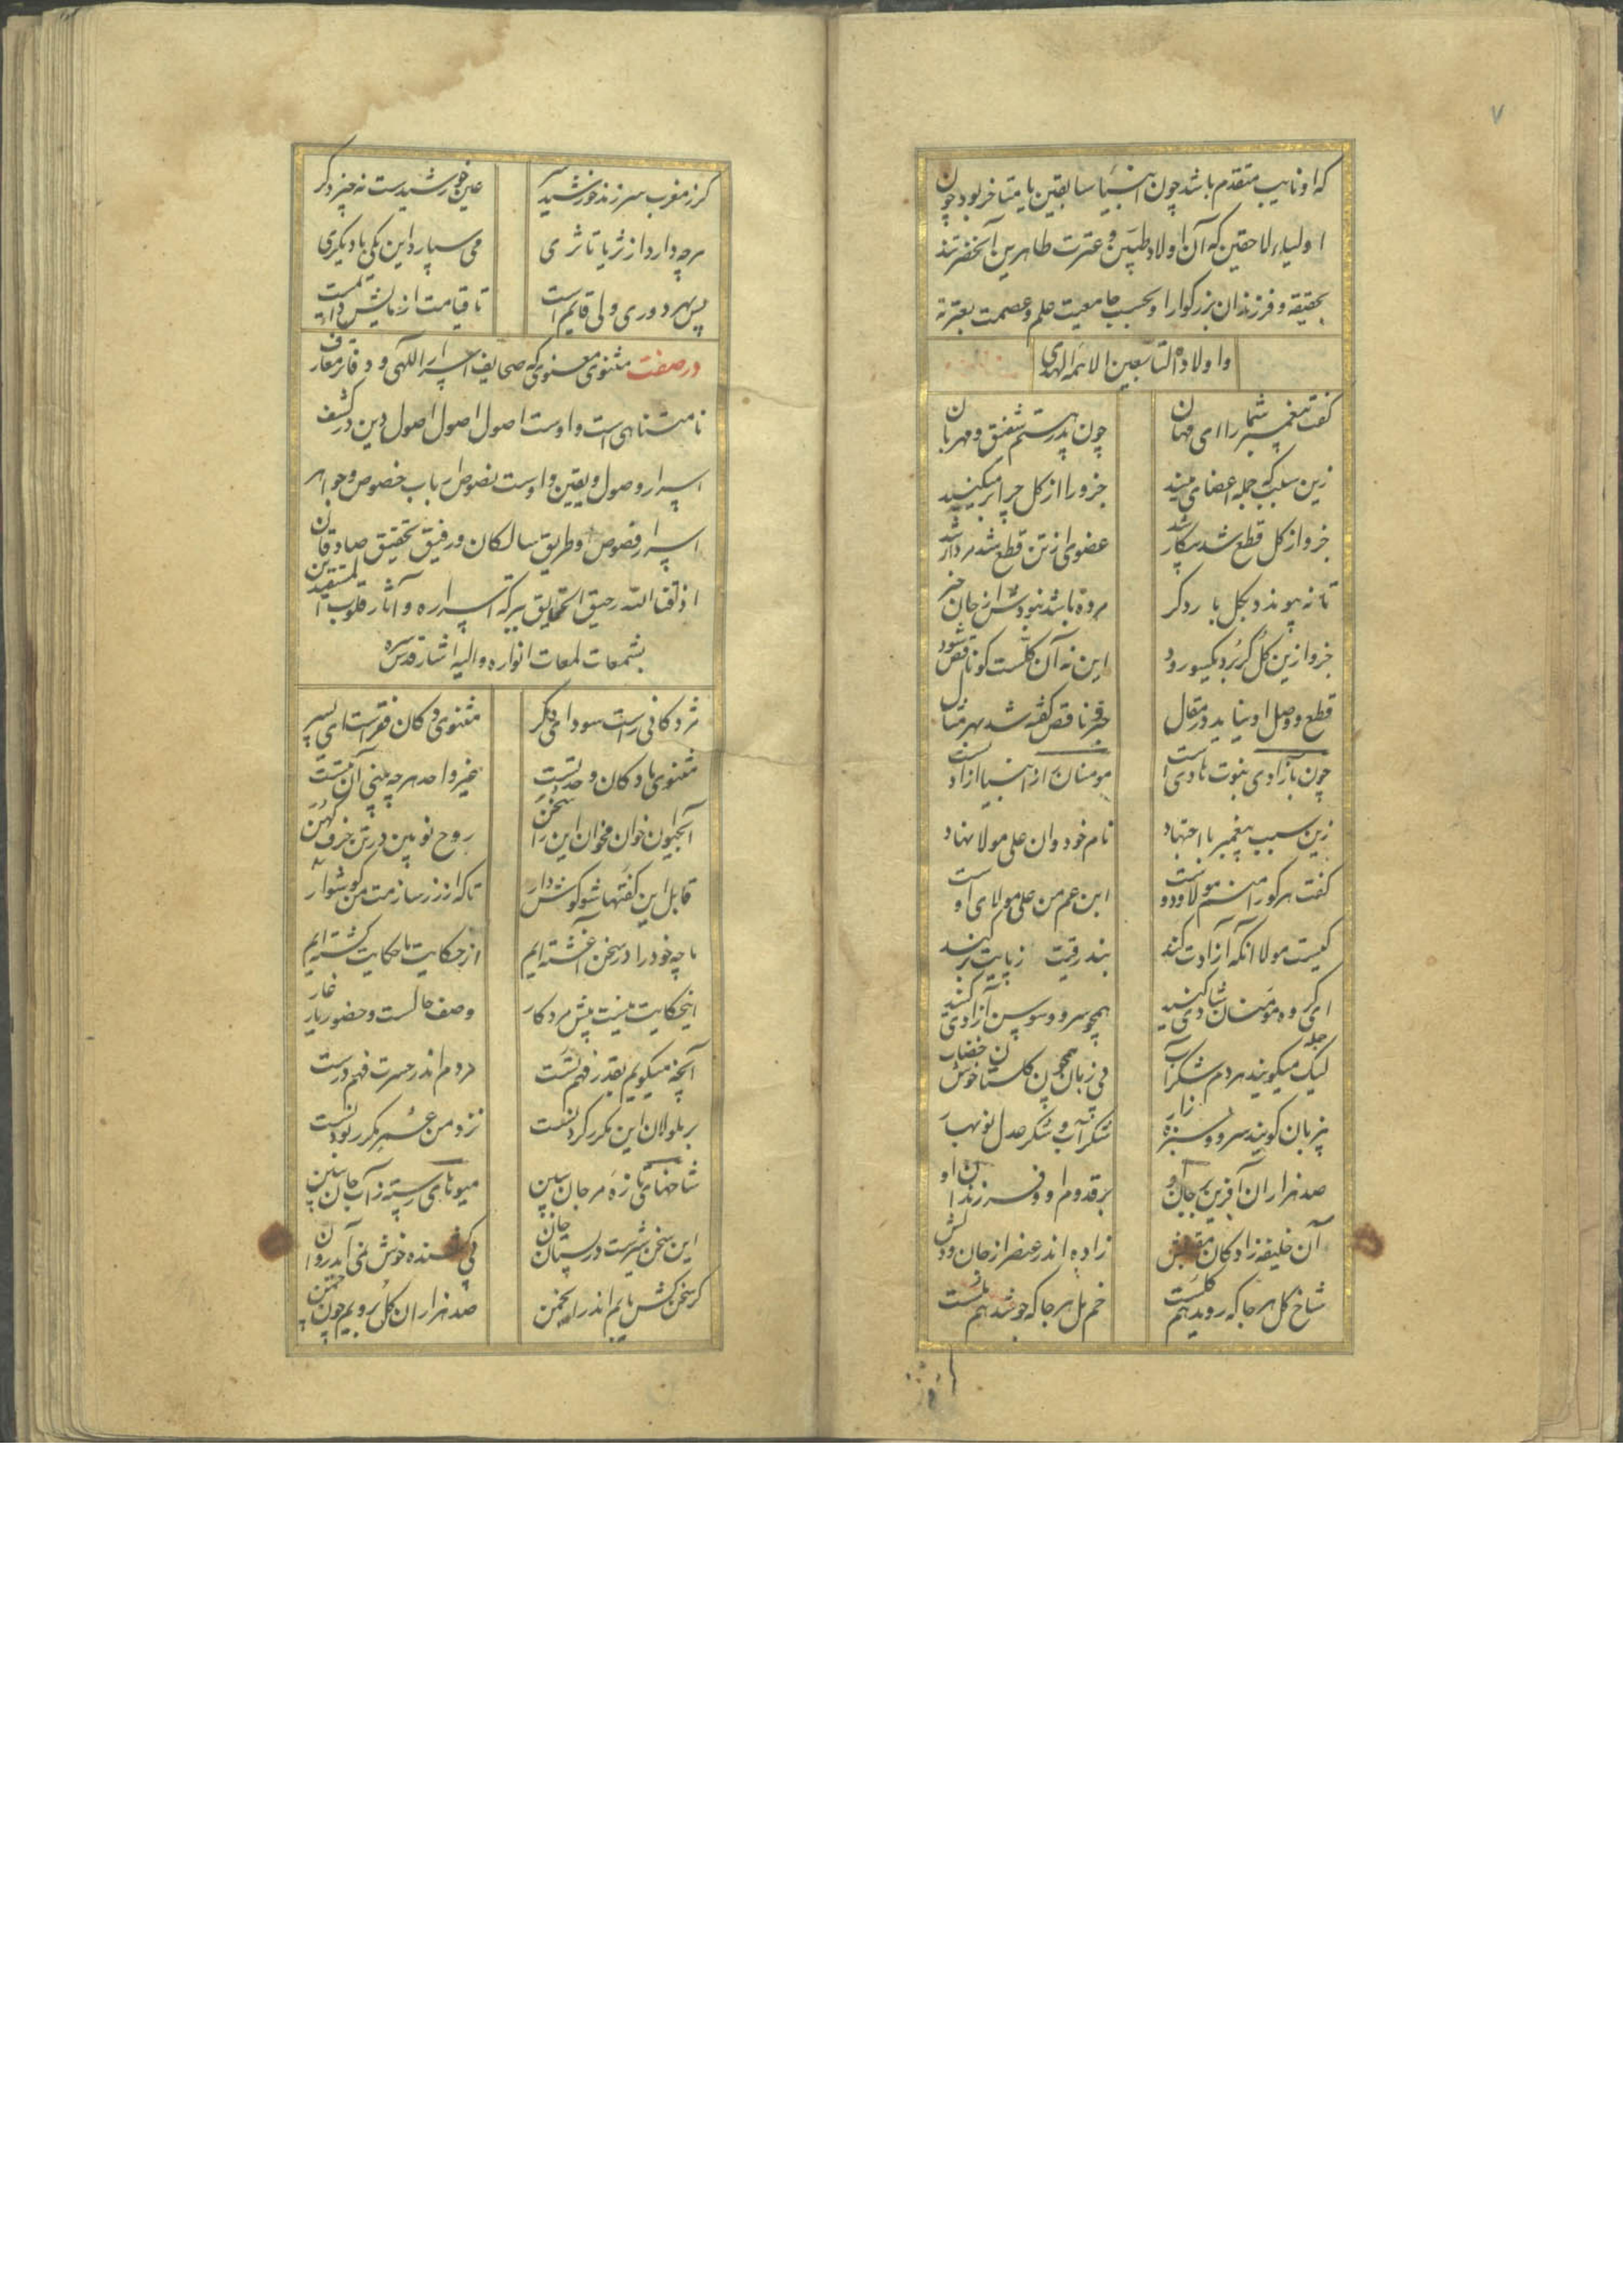 ۷
که او نایب متقدم باشد چون انبیا سابقین یا متاخر بود چون
اولیاء لاحقین که آن اولاد طیبین و عترت طاهرین آنحضرتند
بحقیقه و فرزندان بزرگوار او بحسب جامعیت علم و عصمت بعترته
و اولاده التابعین الائمه الهدی
گفت پیغمبر شما را ای مهان چون پدر هستم شفیق و مهربان
زین سبب که جمله اعضای منید جزو را از کل چرا بر میکنید
جزو از کل قطع شد بیکار شد عضو از تن قطع شد مردار شد
تا نه پیوندد بکل بار دگر مرده باشد نبودش از جان خبر
جزو ازین کل گر برد یکسو رود این نه آن کلست کو ناقص شود
قطع و وصل او نیاید در مقال چیز ناقص گفته شد بهر مثال
چون بآزادی نبوت هادی است مومنان را ز انبیا آزادی است
زین سبب پیغمبر با اجتهاد نام خود و ان علی مولا نهاد
گفت هر کو را منم مولا و دوست ابن عم من علی مولای اوست
کیست مولا آنکه آزادت کند بند رقیت ز پایت بر کند
ای گروه مومنان شادی کنید همچو سرو و سوسن آزادی کنید
لیک میگویید هر دم شکر آب بی زبان چون گلستان خوش خضاب
بی زبان گویند سرو و سبزه زار شکر آب و شکر عدل نوبهار
صد هزاران آفرین بر جان او بر قدوم او و فرزندان او
آن خلیفه زادگان مقبلش زاده اند از عنصر جان و دلش
شاخ گل هر جا که روید هم گلست خم مل هر جا که جوشد هم ملست
گر ز مغرب سر زند خورشید سر عین خورشیدست نه چیز دگر
هر چه دارد از ثریا تا ثری می سپارد این یکی با دیگری
پس بهر دوری ولی قایم است تا قیامت آزمایش دایم است
در صفت مثنوی معنوی که صحایف اسرار الهی و دفاتر معارف
نامتناهی است و اوست اصول اصول اصول دین در کشف
اسرار وصول و یقین و اوست نصوص ارباب خصوص و جواهر
اسرار فصوص و طریق سالکان و رفیق تحقیق صادقان
اذاقنا الله رحیق التحقیق ببرکة اسراره و آثار قلوب المستفیدین
بشمعات لمعات انواره و الیه اشار قدس سره
هر دکانی راست سودای دگر مثنوی دکان فقرست ای پسر
مثنوی ما دکان وحدتست غیر واحد هر چه بینی آن بتست
آب حیوان خوان مخوان این را سخن روح نو بین در تن حرف کهن
قابل این گفتها شو گوش دار تا که از زر سازمت من گوشوار
ما چه خود را در سخن آغشته ایم از حکایت ما حکایت گشته ایم
این حکایت نیست پیش مرد کار وصف حالست و حضور یار غار
آنچه میگویم بقدر فهم تست مردم اندر حسرت فهم درست
بر ملولان این مکرر کردنست نزد من عمر مکرر بردنست
شاخهای تازه مرجان ببین میوهای رسته ز آب جان ببین
این سخن شیرست در پستان جان بی کشنده خوش نمی آید روان
گر سخن کش یابم اندر انجمن صد هزاران گل برویم چون چمن